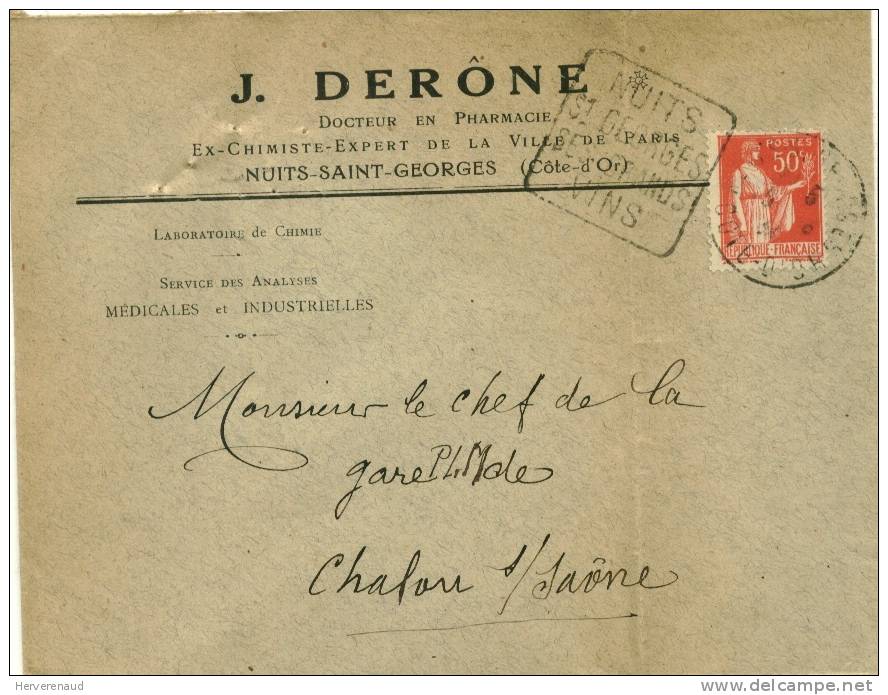 J. DERÔNE
DOCTEUR EN PHARMACIE
EX-CHIMISTE-EXPERT DE LA VILLE DE PARIS
NUITS-SAINT-GEORGES (Côte-d'Or)
LABORATOIRE de CHIMIE
SERVICE DES ANALYSES
MÉDICALES et INDUSTRIELLES
NUITS
ST GEORGES
SES GRANDS
VINS
POSTES
50c
REPUBLIQUE-FRANÇAISE
Monsieur le chef de la
gare PLM de
Chalon s/Saône
Herverenaud
delcampe.net